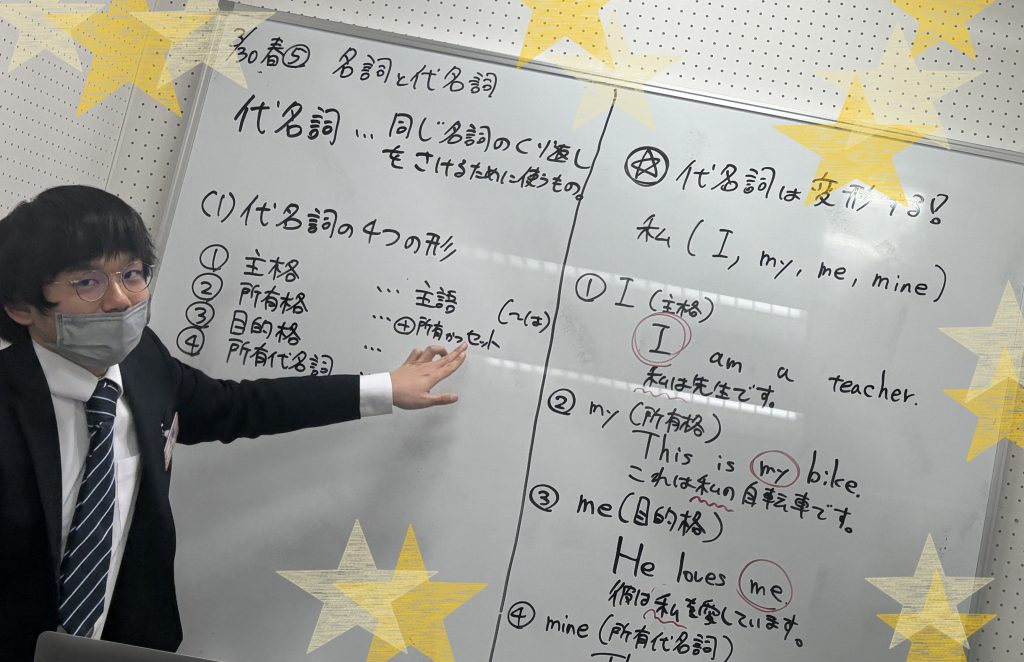 3/30 春⑤ 名詞と代名詞
代名詞 … 同じ名詞のくり返し
をさけるために使うもの。
(1) 代名詞の4つの形
① 主格 … 主語 (〜は)
② 所有格 … ⊕所有かつセット
③ 目的格 …
④ 所有代名詞
☆ 代名詞は変形する!
私 ( I, my, me, mine )
① I (主格)
I am a teacher.
私は先生です。
② my (所有格)
This is my bike.
これは私の自転車です。
③ me (目的格)
He loves me.
彼は私を愛しています。
④ mine (所有代名詞)